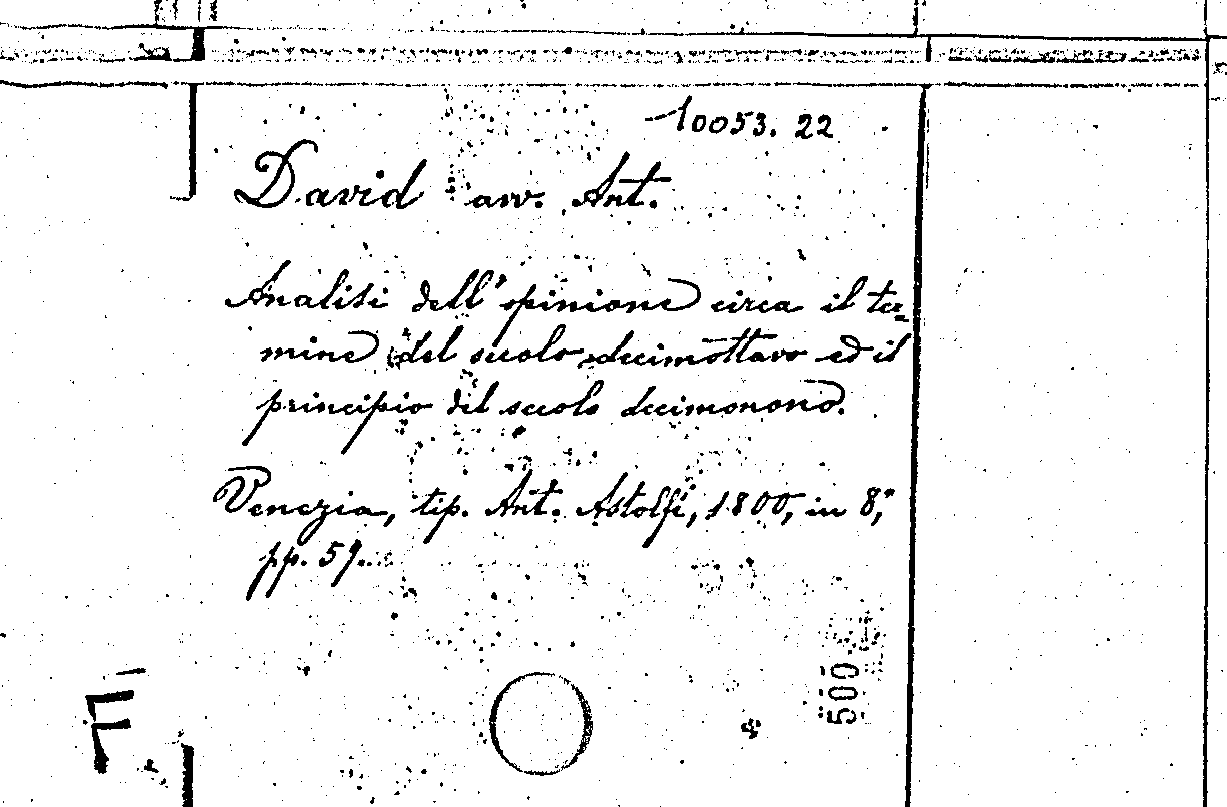 10053. 22
David avv. Ant.
Analisi dell'opinione circa il ter=
mine del secolo decimottavo ed il
principio del secolo decimonono.
Venezia, tip. Ant. Astolfi, 1800, in 8°,
pp. 59.
500